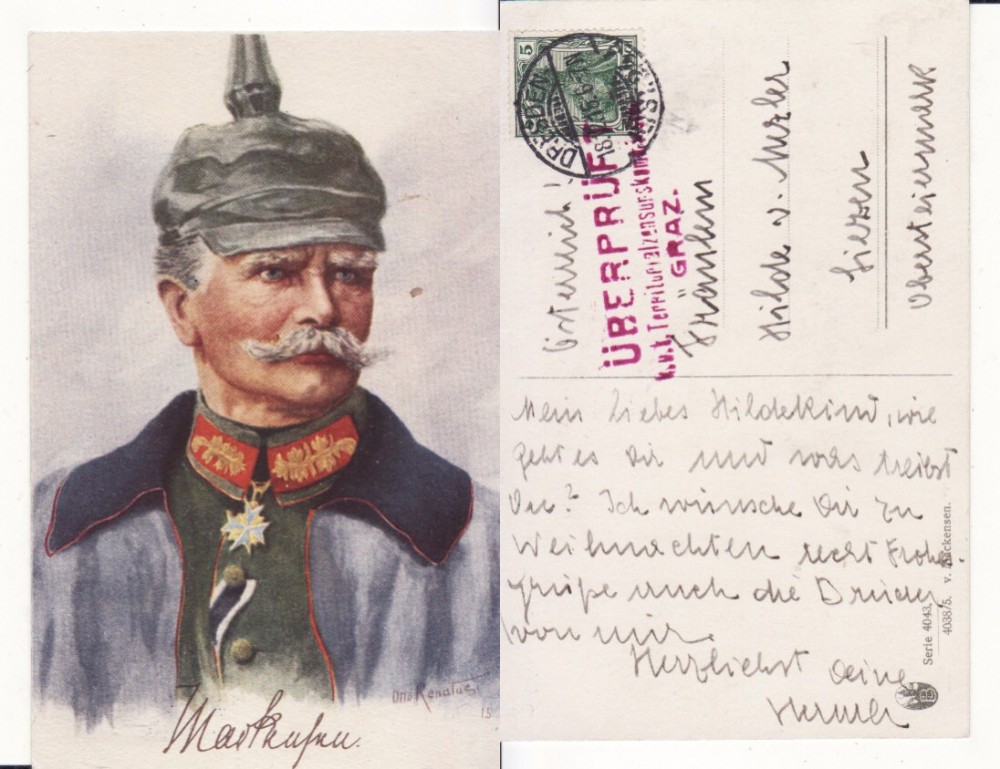 Otto Renatus
15
Mackensen.
5
DRESDEN
18.12.
6-7N
ÜBERPRÜFT
k.u.k. Territorialzensurkommission
GRAZ.
Österreich!
Fräulein
Hilde v.
Liezen
Obersteiermark
Mein liebes Hildekind, wie
geht es dir und was treibst
Du? Ich wünsche dir zu
Weihnachten recht Frohes.
Grüße auch die Brüder
von mir.
Herzlichst deine
Serie 4043.
4038/5. v. Mackensen.